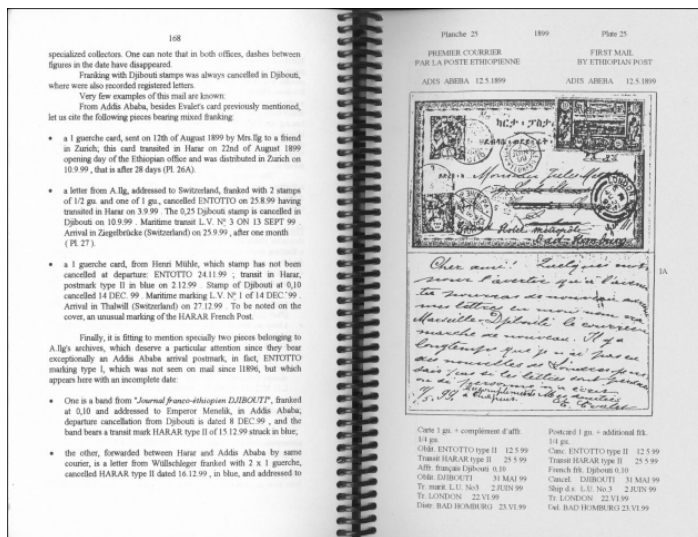 168
specialized collectors. One can note that in both offices, dashes between
figures in the date have disappeared.
Franking with Djibouti stamps was always cancelled in Djibouti,
where were also recorded registered letters.
Very few examples of this mail are known:
From Addis Ababa, besides Evalet's card previously mentioned,
let us cite the following pieces bearing mixed franking:
• a 1 guerche card, sent on 12th of August 1899 by Mrs.Ilg to a friend
in Zurich; this card transited in Harar on 22nd of August 1899
opening day of the Ethiopian office and was distributed in Zurich on
10.9.99 , that is after 28 days (Pl. 26A).
• a letter from A.Ilg, addressed to Switzerland, franked with 2 stamps
of 1/2 gu. and one of 1 gu., cancelled ENTOTTO on 25.8.99 having
transited in Harar on 3.9.99 . The 0,25 Djibouti stamp is cancelled in
Djibouti on 10.9.99 . Maritime transit L.V. Nº 3 ON 13 SEPT 99 .
Arrival in Ziegelbrücke (Switzerland) on 25.9.99 , after one month
( PL 27 ).
• a 1 guerche card, from Henri Mühle, which stamp has not been
cancelled at departure: ENTOTTO 24.11.99 ; transit in Harar,
postmark type II in blue on 2.12.99 . Stamp of Djibouti at 0,10
cancelled 14 DEC. 99 . Maritime marking L.V. Nº 1 of 14 DEC '99 .
Arrival in Thalwill (Switzerland) on 27.12.99 . To be noted on the
cover, an unusual marking of the HARAR French Post.
Finally, it is fitting to mention specially two pieces belonging to
A.Ilg's archives, which deserve a particular attention since they bear
exceptionally an Addis Ababa arrival postmark, in fact, ENTOTTO
marking type I, which was not seen on mail since I1896, but which
appears here with an incomplete date:
• One is a band from "Journal franco-éthiopien DJIBOUTI", franked
at 0,10 and addressed to Emperor Menelik, in Addis Ababa;
departure cancellation from Djibouti is dated 8 DEC.99 , and the
band bears a transit mark HARAR type II of 15.12.99 struck in blue;
• the other, forwarded between Harar and Addis Ababa by same
courier, is a letter from Wüllschleger franked with 2 x 1 guerche,
cancelled HARAR type II dated 16.12.99 , in blue, and addressed to
Planche 25 1899 Plate 25
PREMIER COURRIER FIRST MAIL
PAR LA POSTE ETHIOPIENNE BY ETHIOPIAN POST
ADIS ABEBA 12.5.1899 ADIS ABEBA 12.5.1899
ካርታ ፡ ፖስታ
Monsieur Jules
Grand Hotel métropole
Bad-Homburg
1A
Cher ami! Quelques mots
pour t'avertir qu'à l'avenir
mes lettres
Marseille-Djibouti le courrier
marche de nouveau. Il y a
longtemps que je n'ai pas eu
des nouvelles de Londres je ne
sais pas si les lettres sont perdues
ou si personne m'a écrit.
E. Evalet
Carte 1 gu. + complément d'affr. Postcard 1 gu. + additional frk.
1/4 gu. 1/4 gu.
Oblit. ENTOTTO type II 12 5 99 Canc. ENTOTTO type II 12 5 99
Transit HARAR type II 25 5 99 Transit HARAR type II 25 5 99
Affr. français Djibouti 0,10 French frk. Djibouti 0,10
Oblit. DJIBOUTI 31 MAI 99 Cancel. DJIBOUTI 31 MAI 99
Tr. marit. L.U. No3 2 JUIN 99 Ship d.s. L.U. No.3 2 JUIN 99
Tr. LONDON 22.VI.99 Tr. LONDON 22.VI.99
Distr. BAD HOMBURG 23.VI.99 Del. BAD HOMBURG 23.VI.99